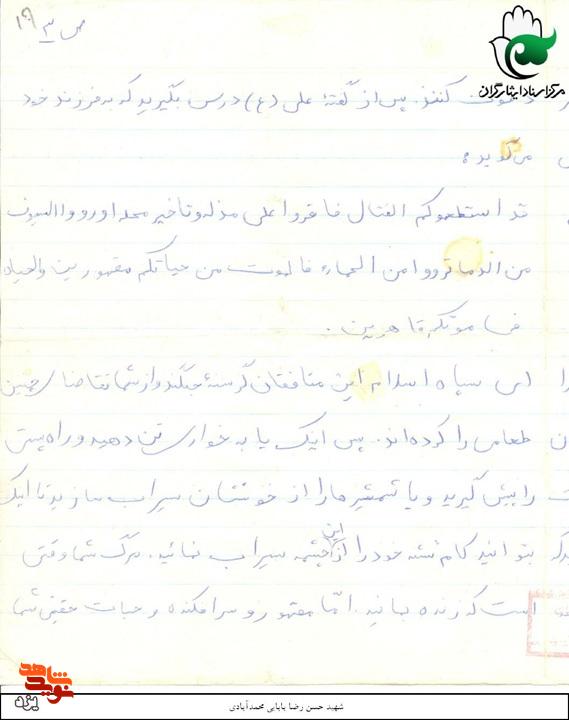 ص ۳
۱۹
مرکز اسناد ایثارگران
دعوت کنند. پس از گفتهٔ علی (ع) درس بگیرید که به فرزند خود
می‌گوید:
قد استطعموکم القتال فاقروا علی مذله و تاخیر محله اورووا السیوف
من الدما ترووا من الماء فالموت من حیاتکم مقهورین والحیاه
فی موتکم قاهرین.
ای سپاه اسلام این منافقان گرسنهٔ جنگند و از شما تقاضای چنین
طعامی را کرده‌اند. پس اینک یا به خواری تن دهید و راه پستی
را پیش گیرید و یا شمشیرها را از خونشان سیراب سازید تا اینکه
بتوانید کام تشنه خود را از این چشمه سیراب نمائید. مرگ شما وقتی
است که زنده بمانید. امّا مقهور و سرافکنده و حیات حقیقی شما
شاهد
نوید
یزد
شهید حسن رضا بابایی محمدآبادی